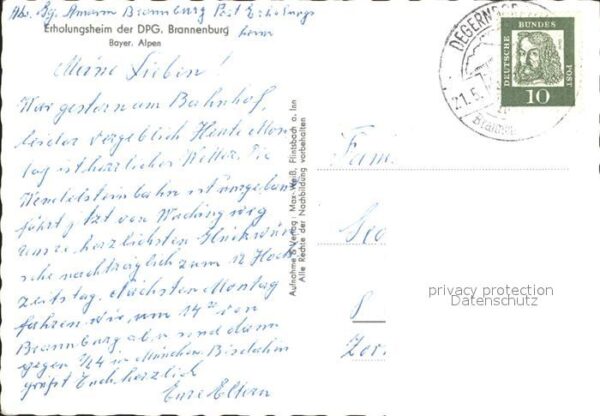 Abs. Gg. Amann Brannburg Post Erholungs
heim
Erholungsheim der DPG. Brannenburg
Bayer. Alpen
Meine Lieben!
War gestern am Bahnhof,
leider vergeblich Heute Mon
tag ist herrliches Wetter. Die
Wendelsteinbahn ist umgebaut
fährt jetzt von Waching weg
Unsre herzlichsten Glückwün
sche nachträglich zum 12 Hoch
zeitstag. Nächsten Montag
fahren wir um 14 von
Brannburg ab u. sind dann
gegen 3/4 4 in München. Bis dahin
grüßt Euch herzlich
Eure Eltern
Aufnahme & Verlag: Max Weiß, Flintsbach a. Inn
Alle Rechte der Nachbildung vorbehalten
DEGERNDORF
21.5.
DEUTSCHE BUNDES POST
10
Fam.
Geo
S
Zer.
privacy protection
Datenschutz